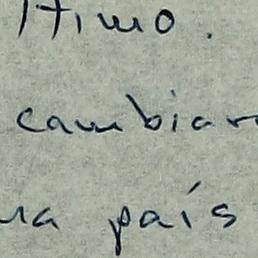 ltimo.
cambiar
na país